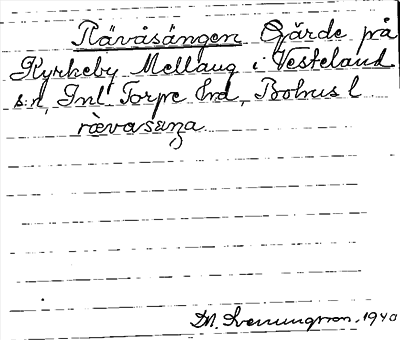 Rävåsängen Gärde på
Kyrkeby Mellaug i Västeland
s:n, Inl. Torpe hd, Bohus l
rævasæŋa
M. Svenungsson. 1940